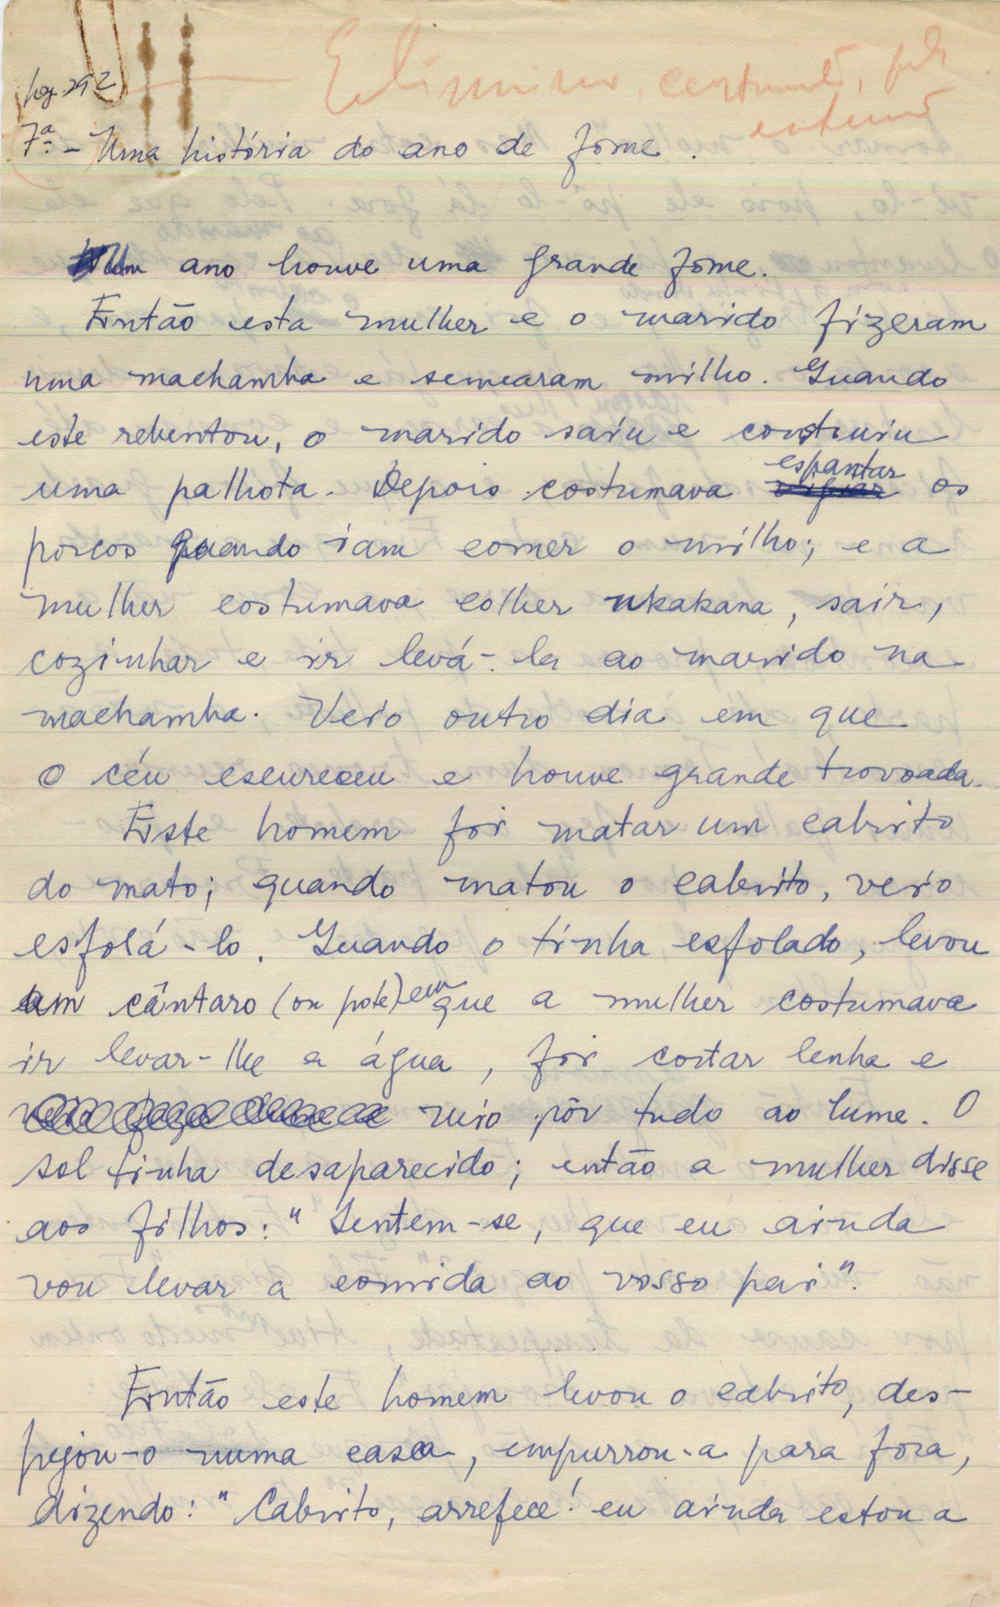 Eliminar, costumes, pls
pag. 292
7ª - Uma história do ano de fome.
Um ano houve uma grande fome.
Então esta mulher e o marido fizeram
uma machamba e semearam milho. Quando
este rebentou, o marido saiu e construiu
uma palhota. Depois costumava espantar os
porcos quando iam comer o milho; e a
mulher costumava colher nkakana, sair,
cozinhar e ir levá-la ao marido na
machamba. Veio outro dia em que
o céu escureceu e houve grande trovoada.
Este homem foi matar um cabrito
do mato; quando matou o cabrito, veio
esfolá-lo. Quando o tinha esfolado, levou
um cântaro (ou pote) em que a mulher costumava
ir levar-lhe a água, foi cortar lenha e
veio pôr tudo ao lume. O
sol tinha desaparecido; então a mulher disse
aos filhos: "Sentem-se, que eu ainda
vou levar a comida ao vosso pai".
Então este homem levou o cabrito, des-
pejou-o numa casca, empurrou-a para fora,
dizendo: "Cabrito, arrefece! eu ainda estou a